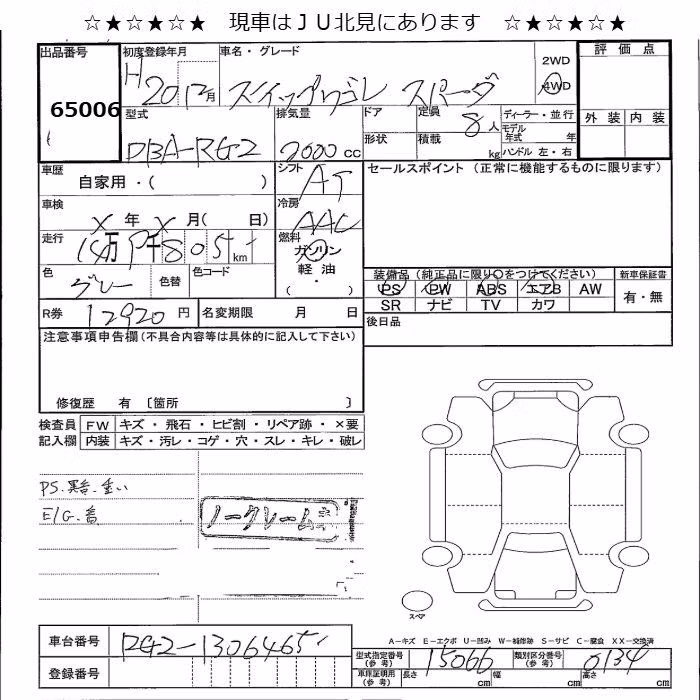 ☆★☆★☆★ 現車はＪＵ北見にあります ☆★☆★☆★
出品番号 初度登録年月 車名・グレード 2WD 評価点
65006 H 20 12月 スパーダ 4WD
型式 排気量 ドア 定員 ディーラー・並行 外装 内装
DBA-RG2 2000 cc 8人 モデル年式 年
形状 積載 kg ハンドル 左・右
車歴 シフト セールスポイント (正常に機能するものに限ります)
自家用・( ) AT
車検 冷房
X 年 X 月( 日) AAC
走行 燃料
万 千 805 km ガソリン
色 色替 色コード 軽油
グレー ( ・ )
装備品 (純正品に限り○をつけてください) 新車保証書
PS PW ABS エアB AW 有・無
SR ナビ TV カワ
R券 12920 円 名変期限 月 日 後日品
注意事項申告欄(不具合内容等は具体的に記入して下さい)
修復歴 有 〔箇所 〕
検査員 FW キズ・飛石・ヒビ割・リペア跡・×要
記入欄 内装 キズ・汚レ・コゲ・穴・スレ・キレ・破レ
PS.異音.重い
E/G.音
ノークレーム
スペア
A－キズ E－エクボ U－凹み W－補修跡 S－サビ C－腐食 XX－交換済
車台番号 RG2-1306465
型式指定番号(参考) 15066 類別区分番号(参考) 0134
登録番号
車庫証明用(参考) 長さ cm 幅 cm 高さ cm